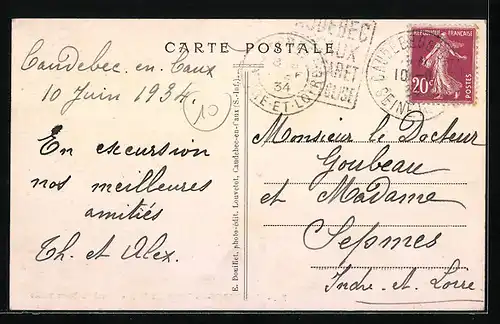 CARTE POSTALE
Caudebec en Caux
10 Juin 1934
10
En excursion
nos meilleures
amitiés
Th. et Alex.
E. Douillet, photo-édit. Louvetot, Caudebec-en-Caux (S.-Inf.)
34
RÉPUBLIQUE FRANÇAISE
20c
POSTES
Monsieur le Docteur
Goubeau
et Madame
Sepmes
Indre et Loire